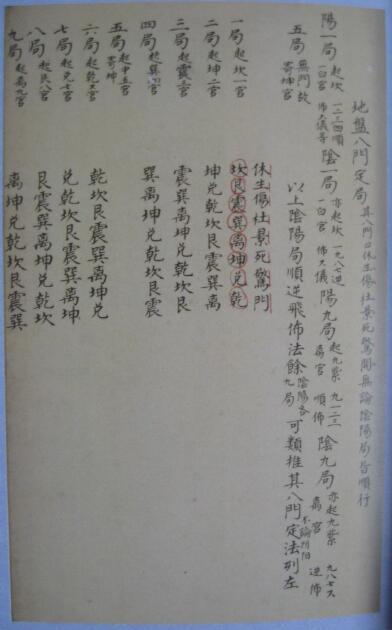 地盤八門定局 其八門曰休生傷杜景死驚開無論陰陽局皆順行
陽一局 起坎一白宮 一二三四順佈六儀等 陰一局 亦起坎一白宮 一九八七逆佈六儀 陽九局 起九紫离宮 九一二三順佈 陰九局 亦起九紫离宮 九八七六逆佈
五局 無門故寄坤宮 以上陰陽局順逆飛佈法餘陰陽各九局可類推其八門不論陰陽定法列左
休生傷杜景死驚門
一局 起坎一宮 坎艮震巽离坤兌乾
二局 起坤二宮 坤兌乾坎艮震巽离
三局 起震三宮 震巽离坤兌乾坎艮
四局 起巽四宮 巽离坤兌乾坎艮震
五局 起中五宮寄坤
六局 起乾六宮 乾坎艮震巽离坤兌
七局 起兌七宮 兌乾坎艮震巽离坤
八局 起艮八宮 艮震巽离坤兌乾坎
九局 起离九宮 离坤兌乾坎艮震巽